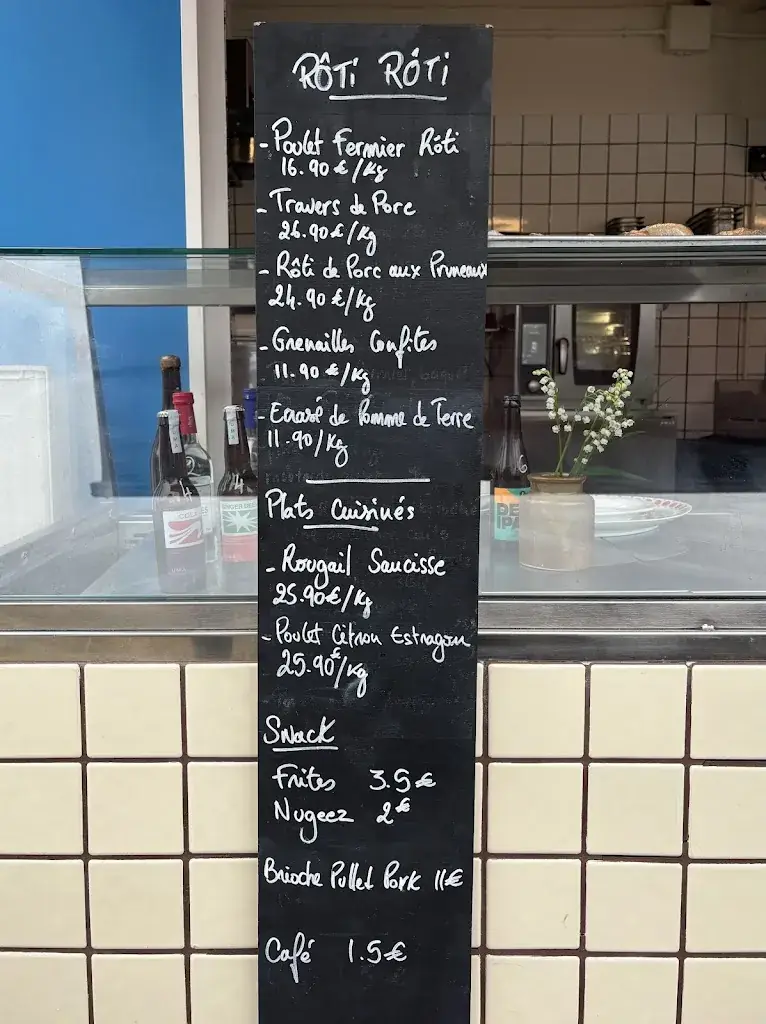 RÔTi RÔTi
- Poulet Fermier Rôti
16.90 €/Kg
- Travers de Porc
26.90 €/Kg
- Rôti de Porc aux Pruneaux
24.90 €/Kg
- Grenailles Confites
11.90 €/Kg
- Ecrasé de Pomme de Terre
11.90/Kg
Plats Cuisinés
- Rougail Saucisse
25.90€/Kg
- Poulet Citron Estragon
25.90€/Kg
Snack
Frites 3.5€
Nugeez 2€
Brioche Pulled Pork 11€
Café 1.5€